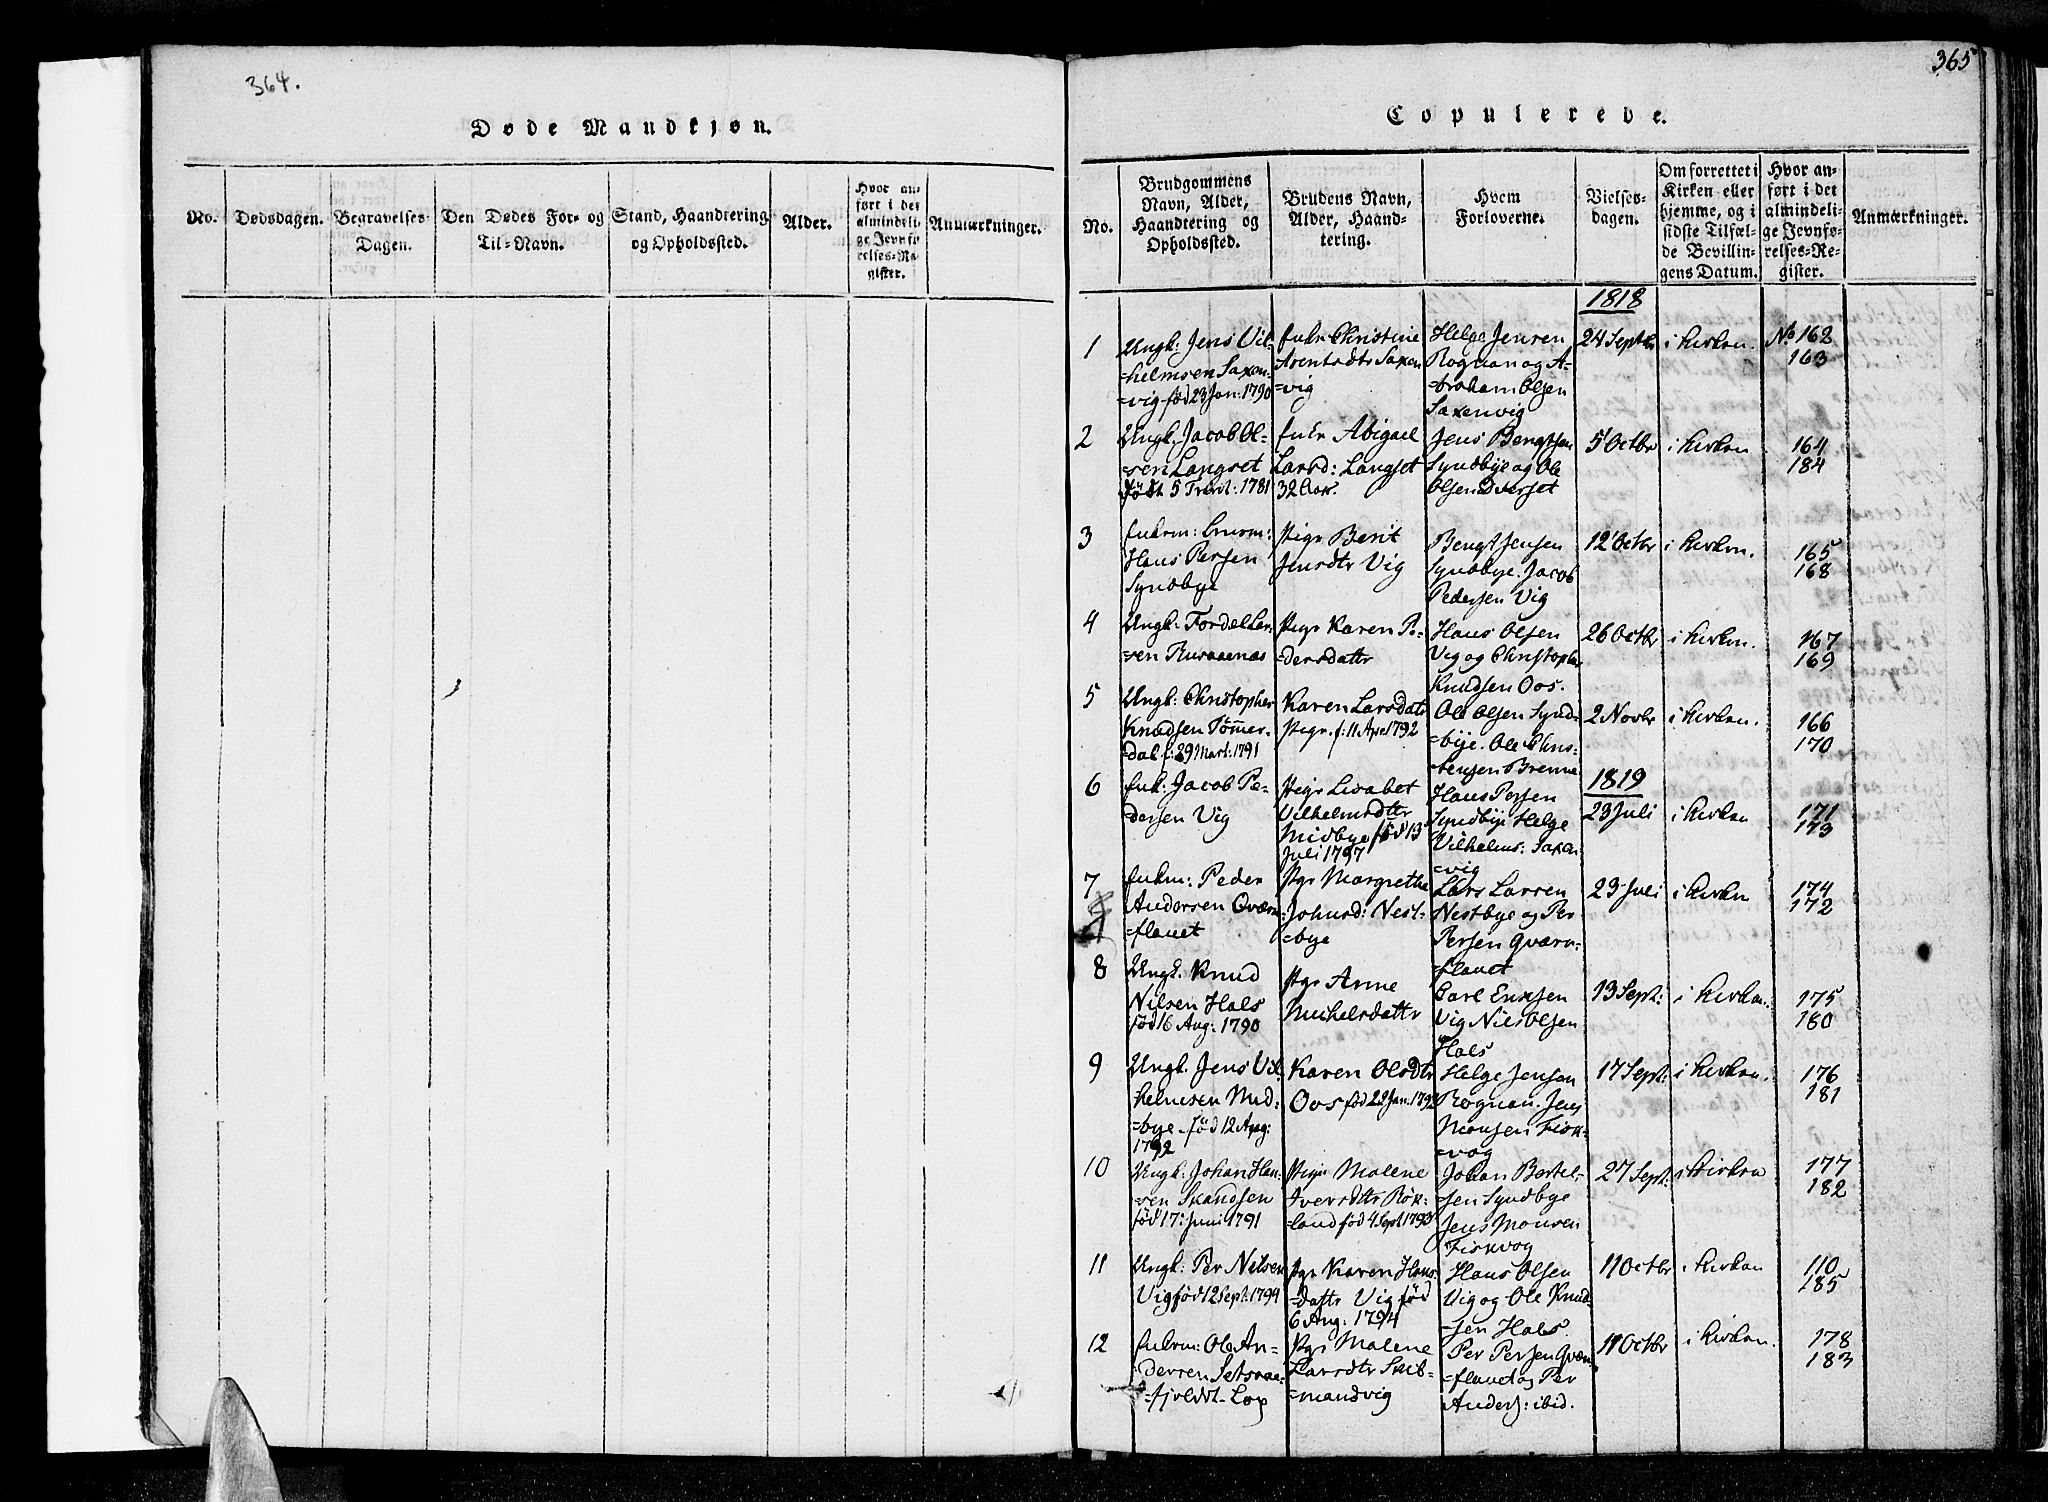 364.
Døde Mandkjøn.
No.
Dødsdagen.
Begravelses-
Dagen.
Den Dødes For- og
Til-Navn.
Stand, Haandtering
og Opholdssted.
Alder.
Hvor an-
ført i det
almindeli-
ge Jevnfø-
relses-Re-
gister.
Anmærkninger.
365
Copulerede.
No.
Brudgommens
Navn, Alder,
Haandtering og
Opholdssted.
Brudens Navn,
Alder, Haand-
tering.
Hvem
Forloverne.
Vielses-
dagen.
Om forrettet i
Kirken eller
hjemme, og i
sidste Tilfæl-
de Bevillin-
gens Datum.
Hvor an-
ført i det
almindeli-
ge Jevnfø-
relses-Re-
gister.
Anmærkninger.
1818
1
Ungk: Jens Vil-
=helmsen Saxen-
=vig fød 23 Jan: 1790
Enke Christine
Arentsdtr Saxen
=vig
Helge Jensen
Rognan og A-
=braham Olsen
Saxenvig
24 Septbr
i Kirken.
No 162
163
2
Ungk. Jacob Ol-
=sen Langset
født 5 1781
Enke Abigael
Larsd: Langset
32 Aar.
Jens Bengtsen
Syndbye og Ole
Olsen Dverset
5 Octbr
i Kirken
164
184
3
Enkem:
Hans Persen
Syndbye
Pige Berit
Jensdtr Vig
Bengt Jensen
Syndbye. Jacob
Pedersen Vig
12 Octbr
i Kirken.
165
168
4
Ungk: Fordel Lar-
=sen Rusaanæs
Pige Karen Pe-
=dersdattr
Hans Olsen
Vig og Christopher
Knudsen Oos.
26 Octbr
i Kirken.
167
169
5
Ungk: Christopher
Knudsen Tømmer-
dal f: 29 Mart: 1791
Karen Larsdatr
Pige. f: 11 Apr 1792
Ole Olsen Synd-
=bye. Ole Chris-
=tensen Brenne
2 Novbr
i Kirken.
166
170
1819
6
Enk: Jacob Pe-
dersen Vig
Pige Lisabet
Vilhelmsdttr
Midbye fød 13
Juli 1797
Hans Persen
Syndbye Helge
Vilhelms: Saxen
=vig
23 Juli
i Kirken
171
173
7
Enkm: Peder
Andersen Qværn
=flauet
Pge Margrethe
Johnsd: Nest-
=bye
Lars Larsen
Nestbye og Per
Persen Qværn-
=flauet
23 Juli
i Kirken
174
172
8
Ungk. Knud
Nilsen Hals
fød 16 Aug: 1790
Pge Anne
Michelsdattr
Carl Ensen
Vig Niels Olsen
Hals
13 Sept:
i Kirken.
175
180
9
Ungk. Jens Vil-
helmsen Mid-
=bye. fød 12 Aug:
1792
Karen Olsdtr
Oos fød 29 Jan: 1792
Helge Jensen
Rognan. Jens
Monsen Fisk-
=vog
17 Sept:
i Kirken.
176
181
10
Ungk: Johan Han-
=sen Skandsen
fød 17: Juni 1791
Pige Malene
Iversdttr Røk-
=land fød 4 Sept 1793
Johan Bertel-
sen Syndbye
Jens Monsen
Fiskvog
27 Sept:
i Kirken
177
182
11
Ungk: Per Nilsen
Vig fød 12 Sept: 1794
Pge Karen Hans-
=dattr Vig fød
6 Aug: 1794
Hans Olsen
Vig og Ole Knud-
=sen Hals.
11 Octbr
i Kirken
110
185
12
Enkem: Ole An-
dersen Setsaae-
=fjeldet
Pge Malene
Larsdtr Skib-
=mandvig
Per Persen Qværn
=flauet og Per
Anders: ibid.
11 Octbr
i Kirken.
178
183